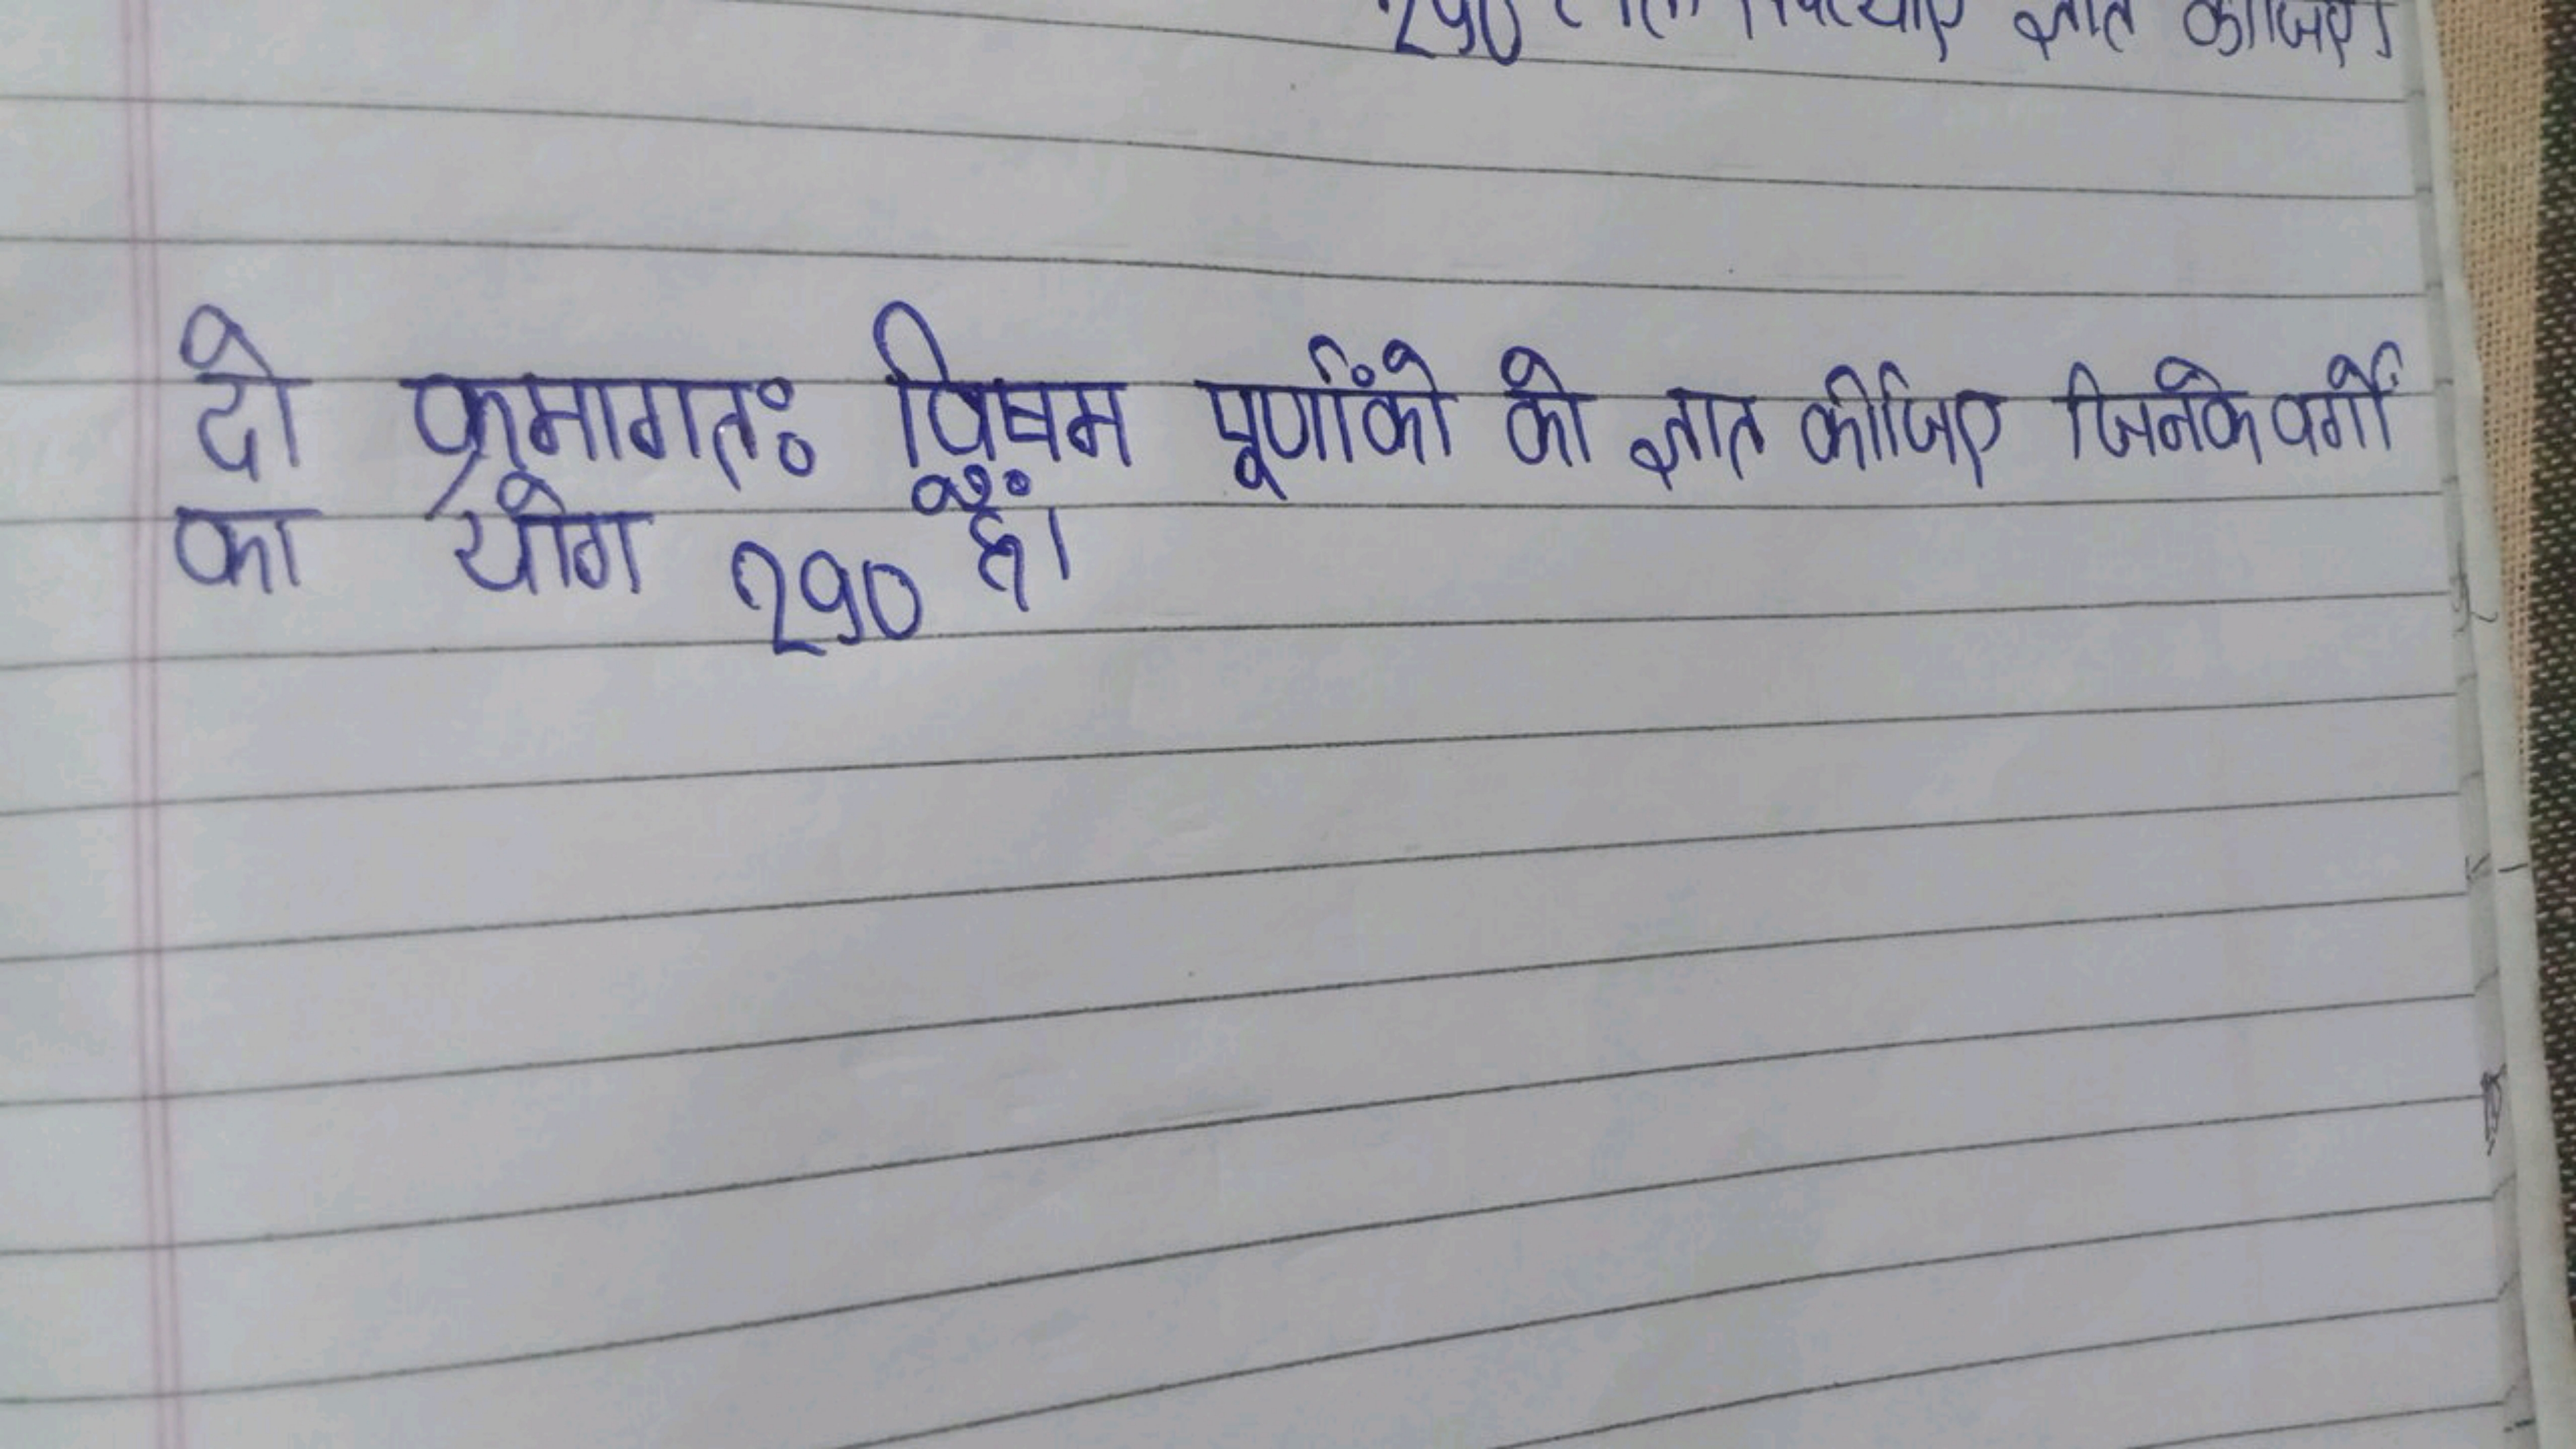 290 ज्ञात कीजिए।
दो क्रमागतः विषम पूर्णांको को ज्ञात कीजिए जिनके वर्गों
का योग 290 हैं।